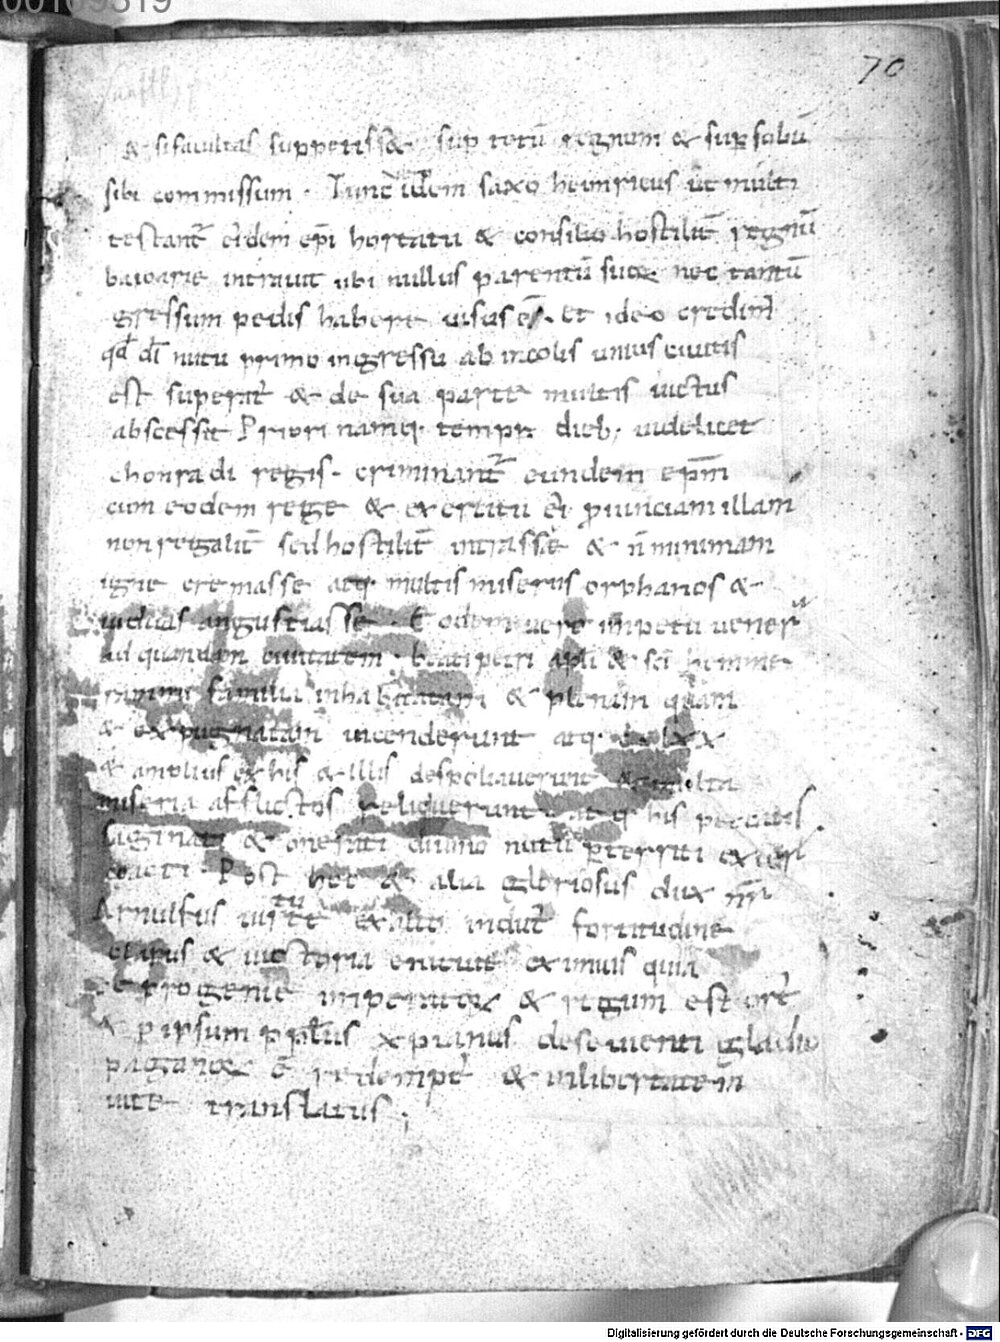 70
& si facultas suppetiss&. sup totū regnum & suꝑ solū
sibi commissum. Tunc idem saxo heinricus ut multi
testant̄ eidem ep̄i hortatu & consilio hostilit̄ regnū
baioarie intrauit ubi nullus parentū suoꝝ nec tantū
gressum pedis habere uisus ē. et ideo credim᾽
qd̄ dī nutu primo ingressu ab incolis unius ciuitatis
est superat᾽ & de sua parte multis uictus
abscessit Priori namq. temporū dieb; uidelicet
chonradi regis. criminant̄ eundem ep̄m
cum eodem rege & exercitu ei᾽ ꝓuinciam illam
non regalit̄ sed hostilit̄ intrasse & n̄ minimam
igne cremasse atq. multis miseriis orphanos &
uiduas angustiasse. Eodem uero impetu uener̄
ad quandam ciuitatem. beati petri apl̄i & sc̄i
familia inhabitatam & plenam quam
& expugnatam incenderunt atq.
& amplius ex his & illis despoliauerunt & multa
miseria afflictos reliquerunt. atq. his peccatis
saginati & onerati diuino nutu ꝑterriti exire
coacti. Post hec & alia gloriosus dux nr̄
Arnulfus uirtute ex alto indut᾽ fortitudine
clarus & uictoria enituit eximius quia
de progenie imperatoꝝ & regum est ort᾽
& ꝑ ipsum ppl̄us xpianus de seuienti gladio
paganoꝝ ē redempt᾽ & in libertatem
uite translatus.
Digitalisierung gefördert durch die Deutsche Forschungsgemeinschaft - DFG